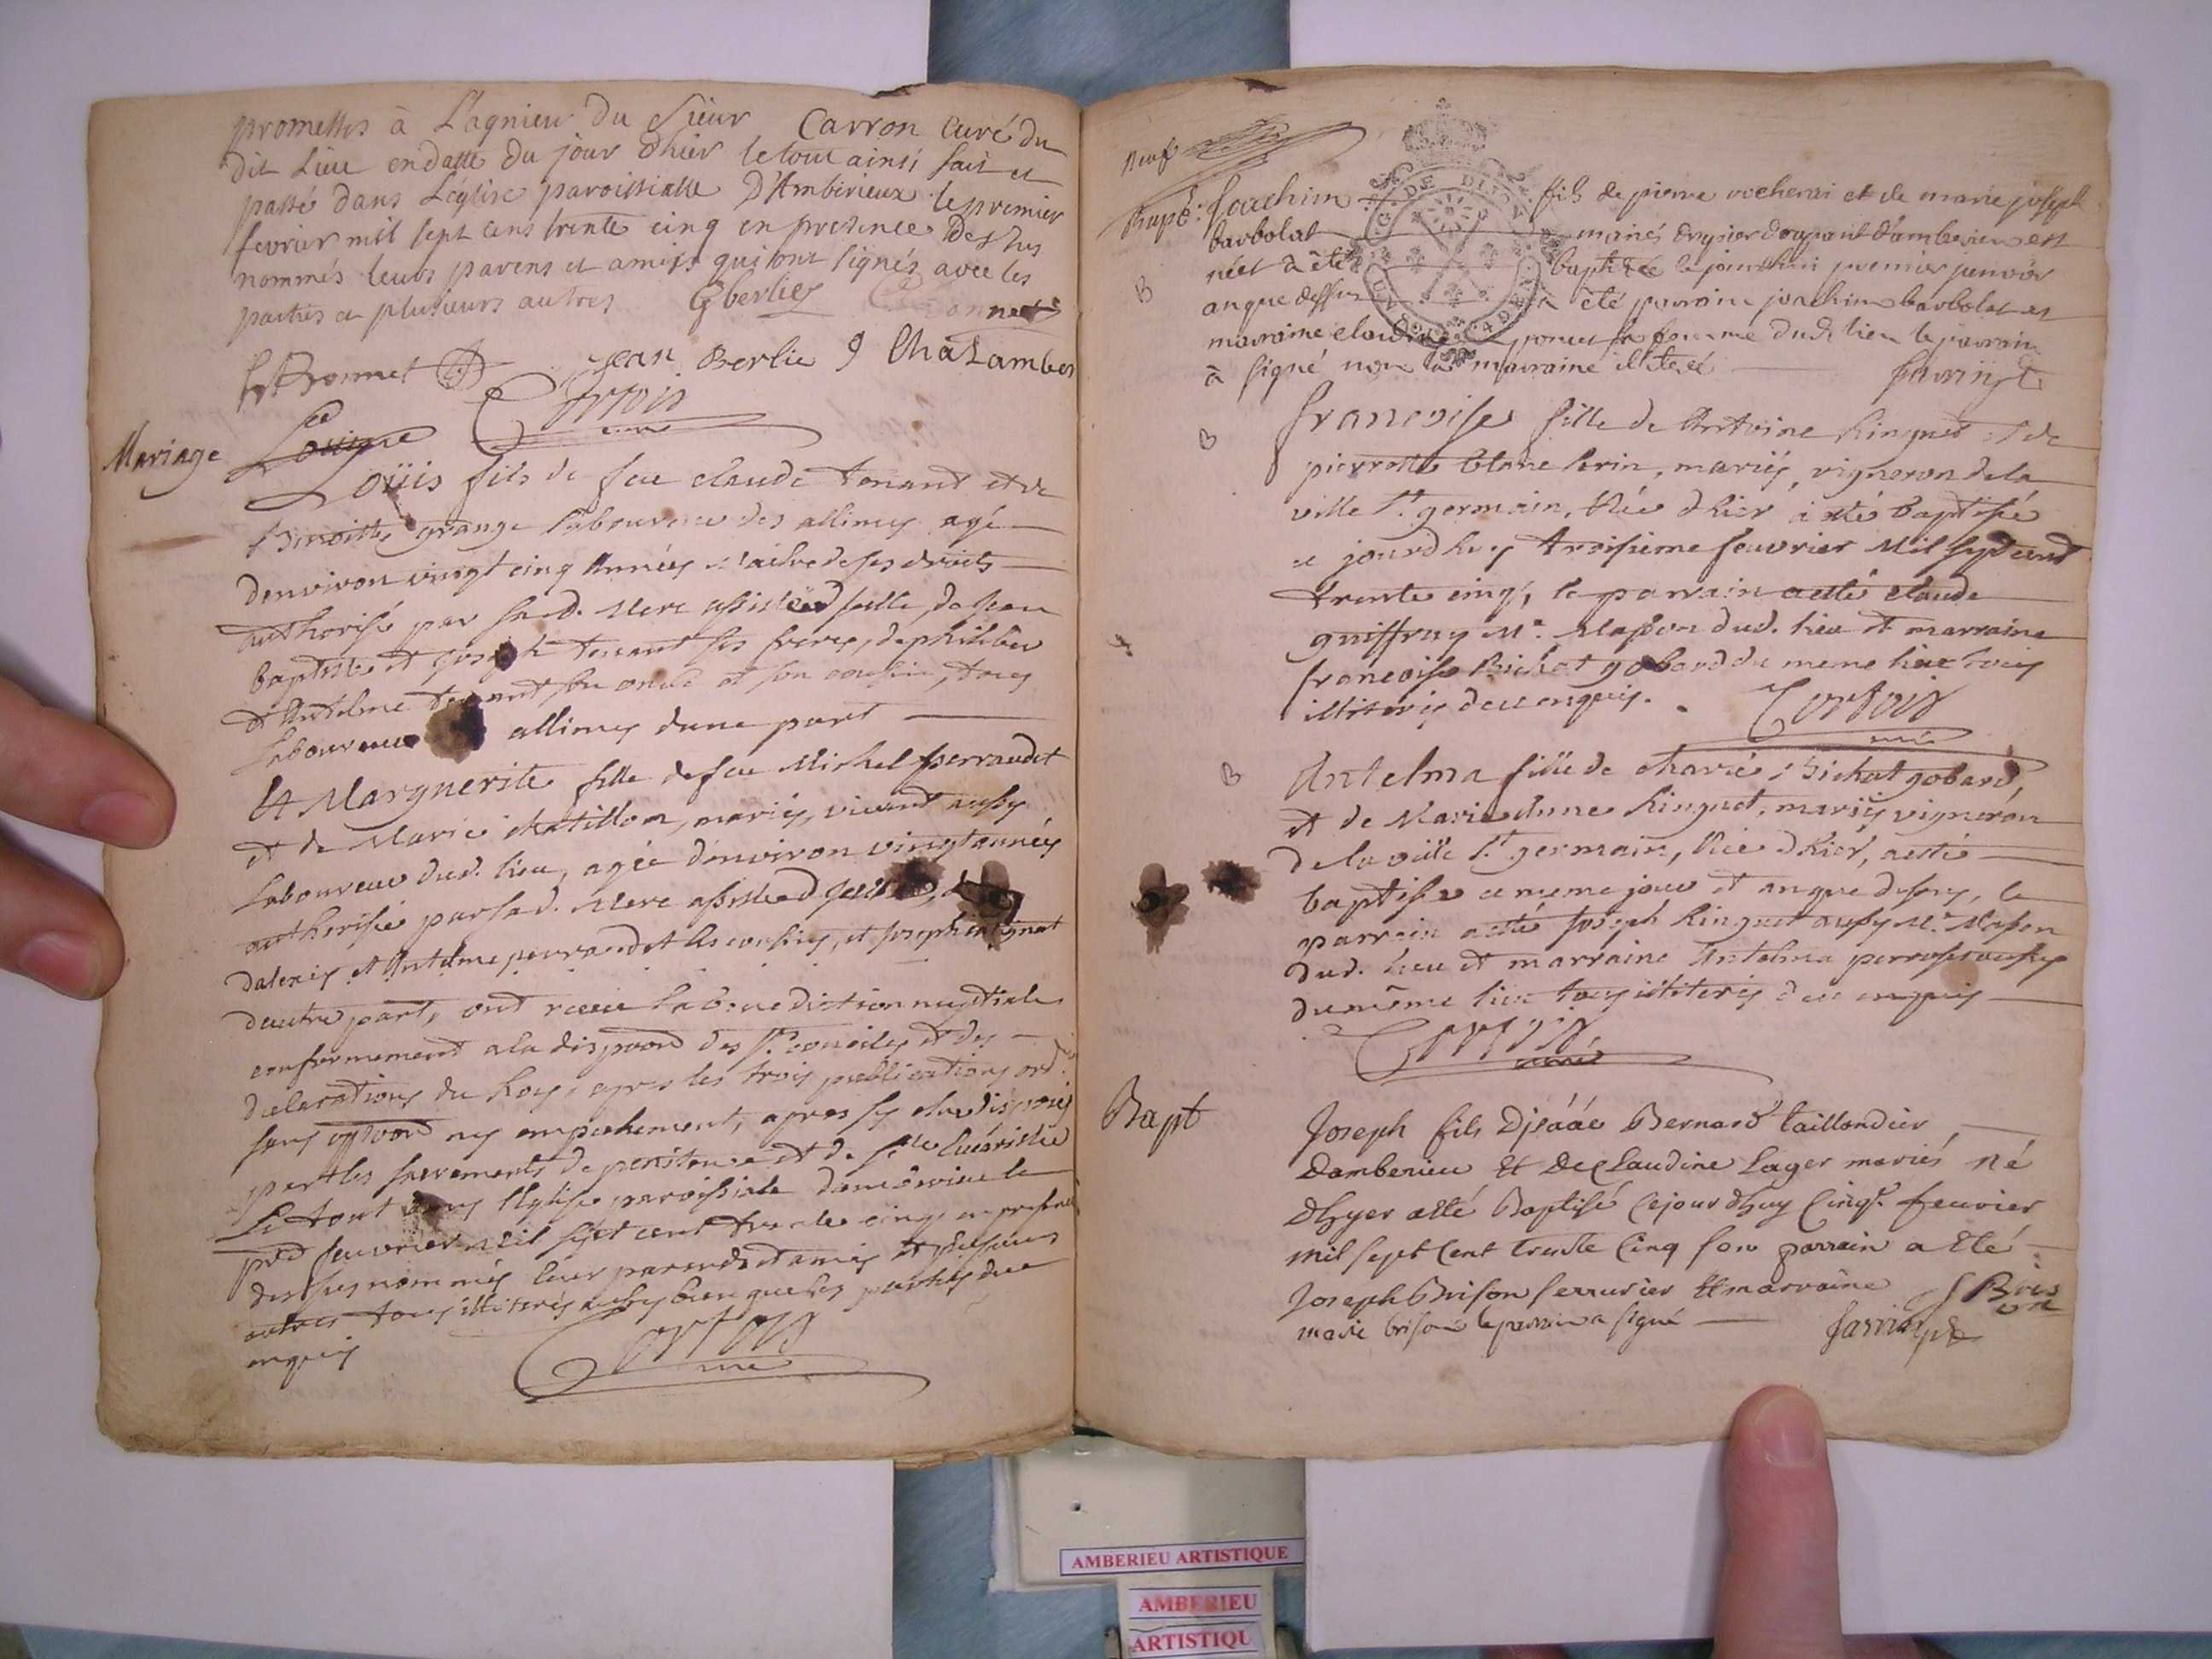 promesses à Lagnieu du Sieur Carron Curé du
dit Lieu en datte du jour d'hier le tout ainsi fait et
passé dans L'eglise paroissialle D'Ambérieux le premier
fevrier mil sept cens trente cinq en presence Des sus
nommés leurs parens et amis qui ont signés avec les
parties et plusieurs autres Gberlies onnet
Bonnet Jean Berlie J Chalamber
Cortois
curé
Mariage
Louise
Loüis fils de feu claude tenant et de
Benoitte grange laboureur des allimes agé
denviron vingt cinq Années Maitre de ses droits
authorisé par sad. Mere assisté d'jcelle, de Jean
baptiste et Joseph tenant ses freres, de philiber
et Antelme tenant son oncle et son cousin, tous
laboureurs allimes dune part
Et Marguerite fille de feu Michel perraudet
et de Marie chatillon, mariés, vivant aussy
laboureur dud. lieu, agée d'environ vingt années
authorisée par sad. Mere assistée d'jcelle,
dalexis et Antelme perraudet ses cousins, et Joseph
dautre part, ont reçeu la benediction nuptiale
conformement a la dispoon des Sts conciles et des
declarations du Roy, apres les trois publications ord.
sans oppoon ny empechement, apres sy etre disposés
par les sacrements de penitence et de Ste Eucaristie
Le tout dans l'Eglise paroissiale dambérieu le
prd feuvrier Mil sept cent trente cinq en presence
des susnommés leur parents et amis et plusieurs
autres tous illiterés aussy bien que les parties de ce
enquis
Cortois
curé
Neuf
Bapt: Joachim fils de pierre rocherai et de marie joseph
barbolat mariés d'ambérieu est
néet à été baptisée le jourdhui premier janvier
an que dessus a été parrain joachim barbolat et
marraine claudine femme dud. lieu le parrain
à signé non la marraine illiterée
B
B
françoise fille de Antoine Ringuet et de
pierrette blanc lorin, mariés, vigneron de la
ville St germain, Née d'hier a esté baptisée
ce jourdhuy troisieme feuvrier Mil sept cent
trente cinq, le parrain a esté claude
guiffray Me Masson dud. lieu et marraine
françoise Bichat gobard du meme lieu tous
illiterés de ce enquis.
Cortois
curé
B
Antelma fille de charle Bichat gobard,
et de Marie Anne Ringuet, mariés vigneron
de la ville St germain, Née d'hier, a esté
baptisée ce meme jour et an que dessus, le
parrain a esté Joseph Ringuet aussy Me Masson
dud. lieu et marraine Antelma perrosset aussy
du même lieu tous illiterés de ce enquis
Cortois
curé
Bapt
Joseph fils Djsáác Bernard taillandier
Damberieu Et De Claudine Lager mariés né
d'hyer a esté Baptisé cejourdhuy cinqe. feuvrier
mil sept Cent trente Cinq son parrain a Eté
Joseph Brison serrurier Et marraine J Bris
on
marie brison le parrain a signé
AMBERIEU ARTISTIQUE
AMBERIEU
ARTISTIQU